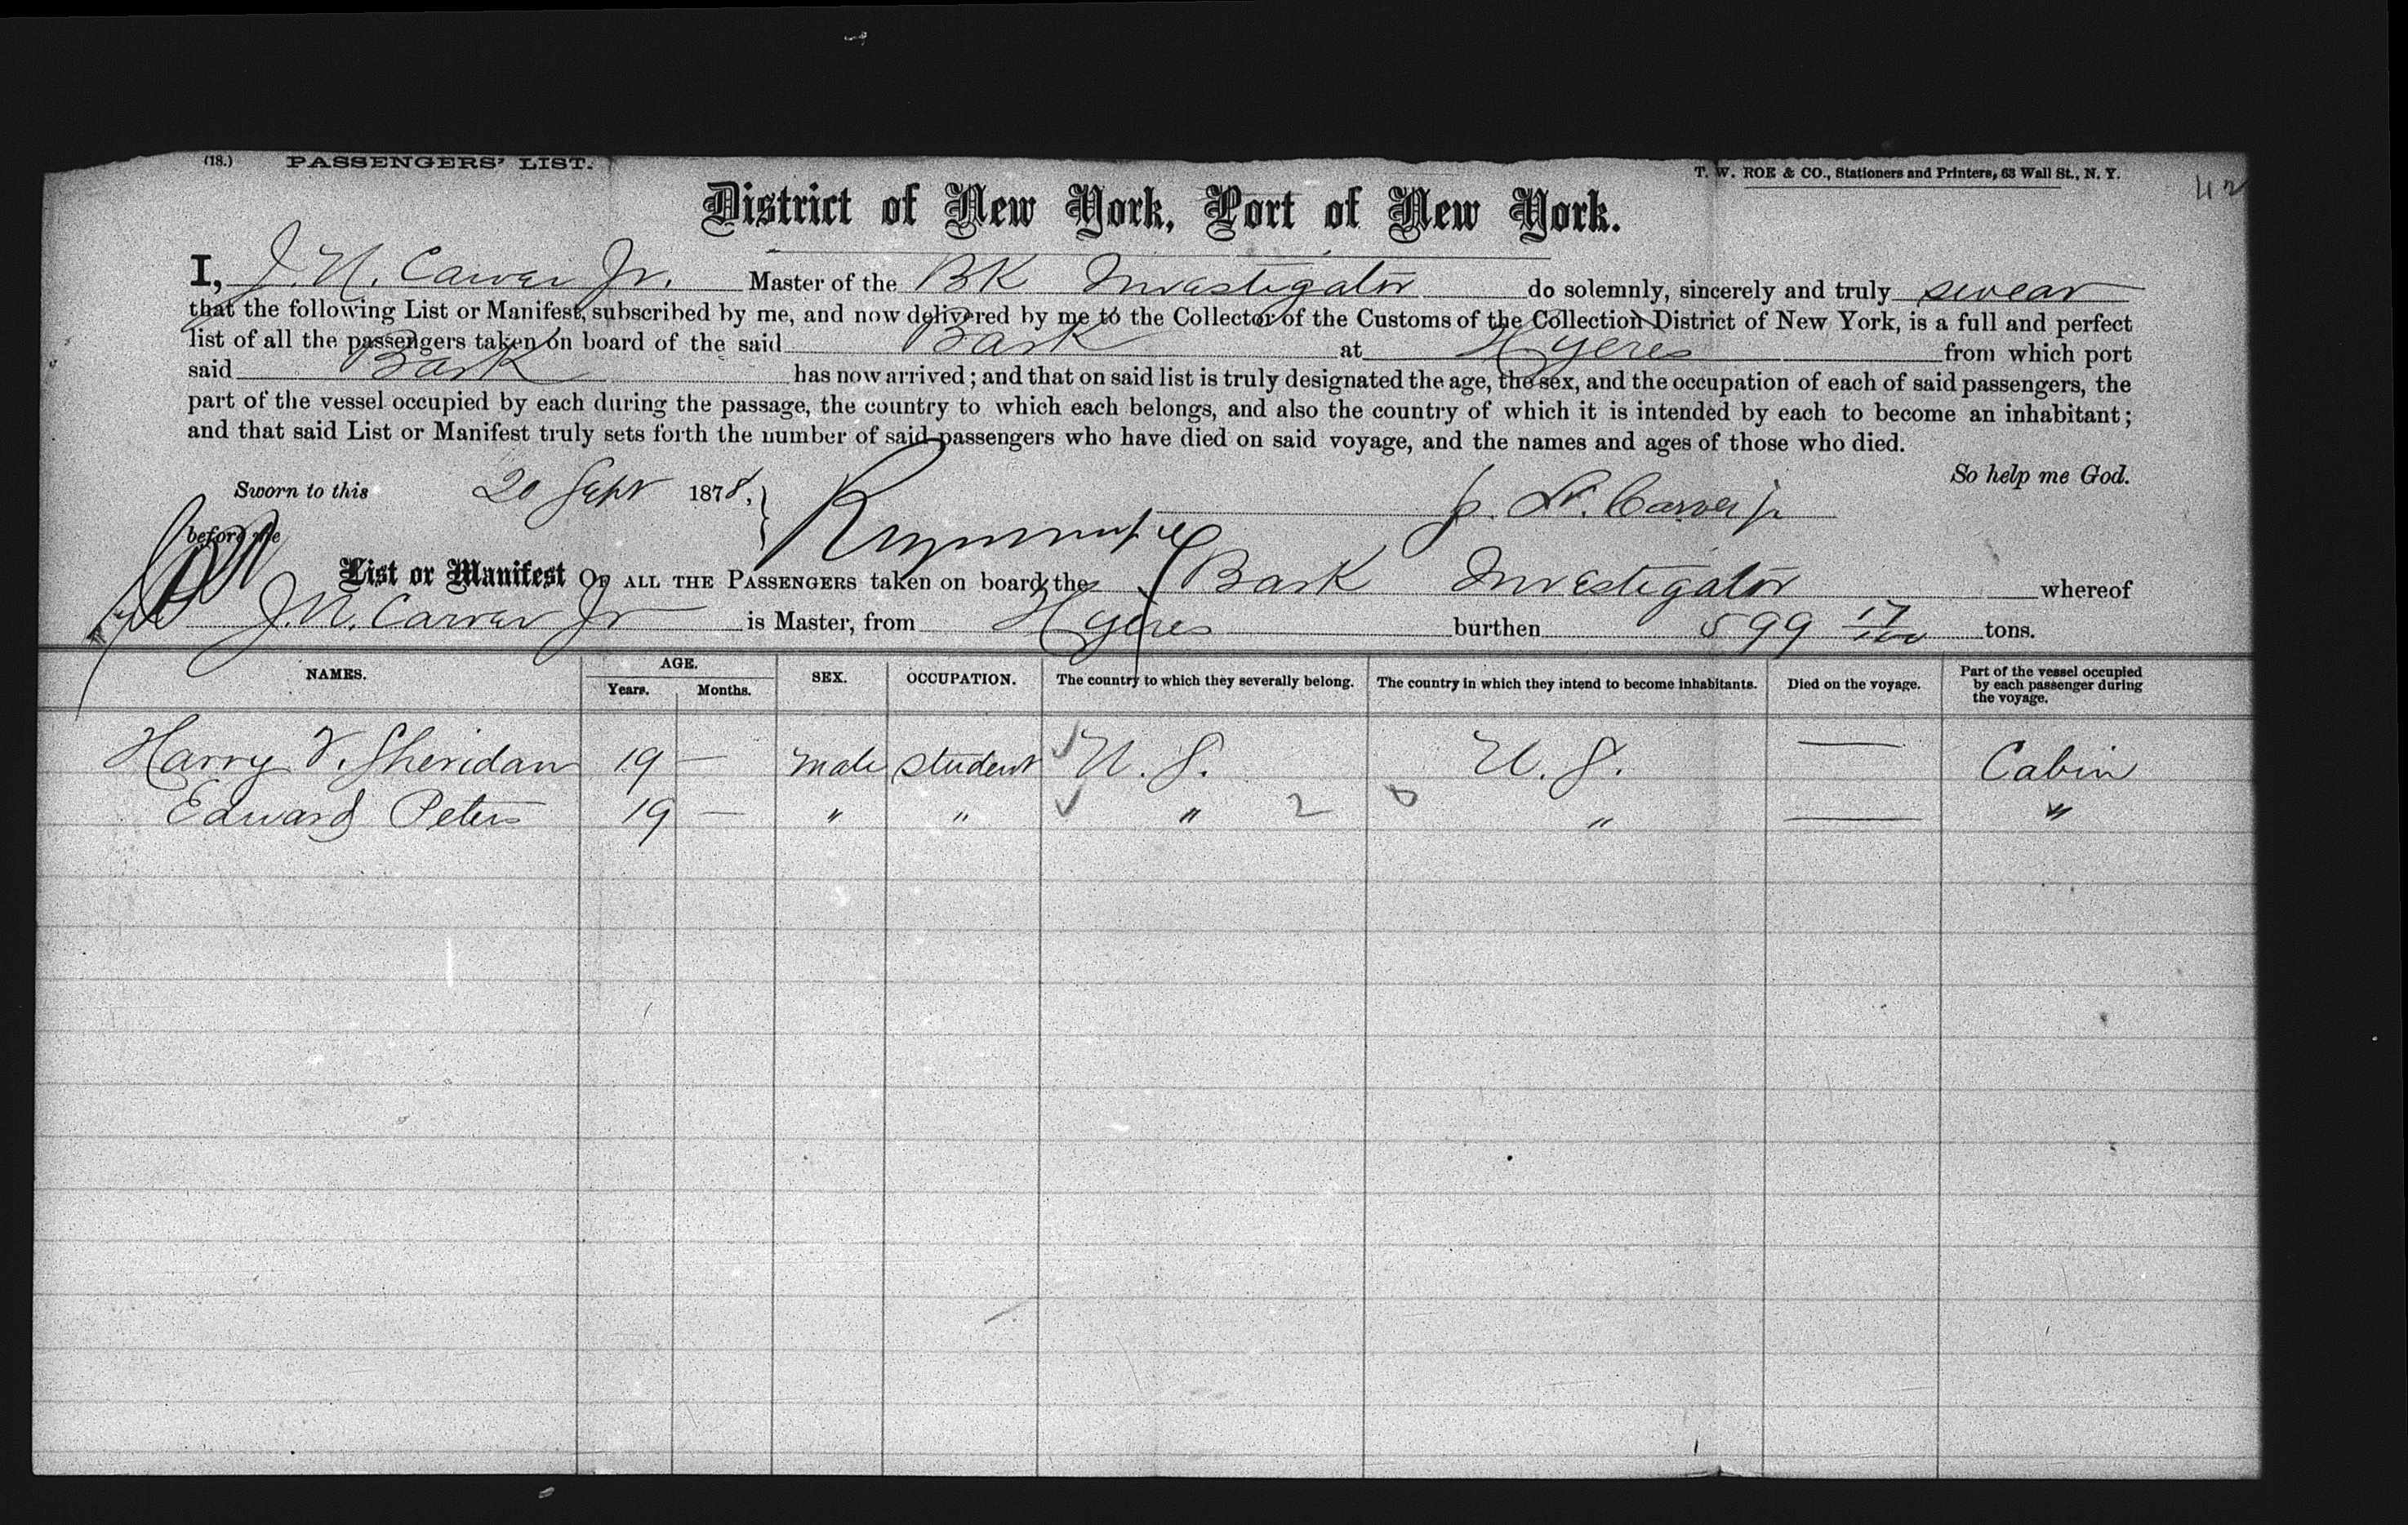 (18.) PASSENGERS' LIST. T. W. ROE & CO., Stationers and Printers, 63 Wall St., N. Y. 42
District of New York, Port of New York.
I, J. N. Carver Jr. Master of the BK Investigator do solemnly, sincerely and truly swear
that the following List or Manifest, subscribed by me, and now delivered by me to the Collector of the Customs of the Collection District of New York, is a full and perfect
list of all the passengers taken on board of the said Bark at Hyeres from which port
said Bark has now arrived; and that on said list is truly designated the age, the sex, and the occupation of each of said passengers, the
part of the vessel occupied by each during the passage, the country to which each belongs, and also the country of which it is intended by each to become an inhabitant;
and that said List or Manifest truly sets forth the number of said passengers who have died on said voyage, and the names and ages of those who died.
So help me God.
Sworn to this 20 Sept 1878, J. N. Carver jr
before me
List or Manifest OF ALL THE PASSENGERS taken on board the Bark Investigator whereof
J. N. Carver Jr is Master, from Hyeres burthen 599 17/100 tons.
NAMES. AGE. Years. Months. SEX. OCCUPATION. The country to which they severally belong. The country in which they intend to become inhabitants. Died on the voyage. Part of the vessel occupied by each passenger during the voyage.
Harry V. Sheridan 19 — male student U. S. U. S. — Cabin
Edward Peters 19 — " " " 2 " — "